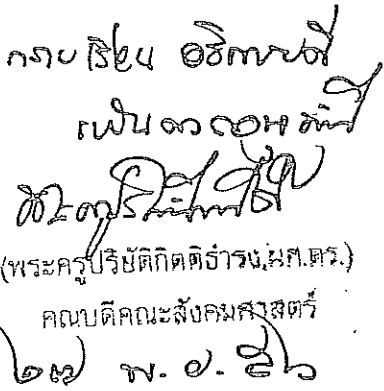 กราบเรียน อธิการบดี
เห็นควรอนุมัติ
(พระครูปริยัติกิตติธำรง,ผศ.ดร.)
คณบดีคณะสังคมศาสตร์
๒๗ พ.ย. ๕๖